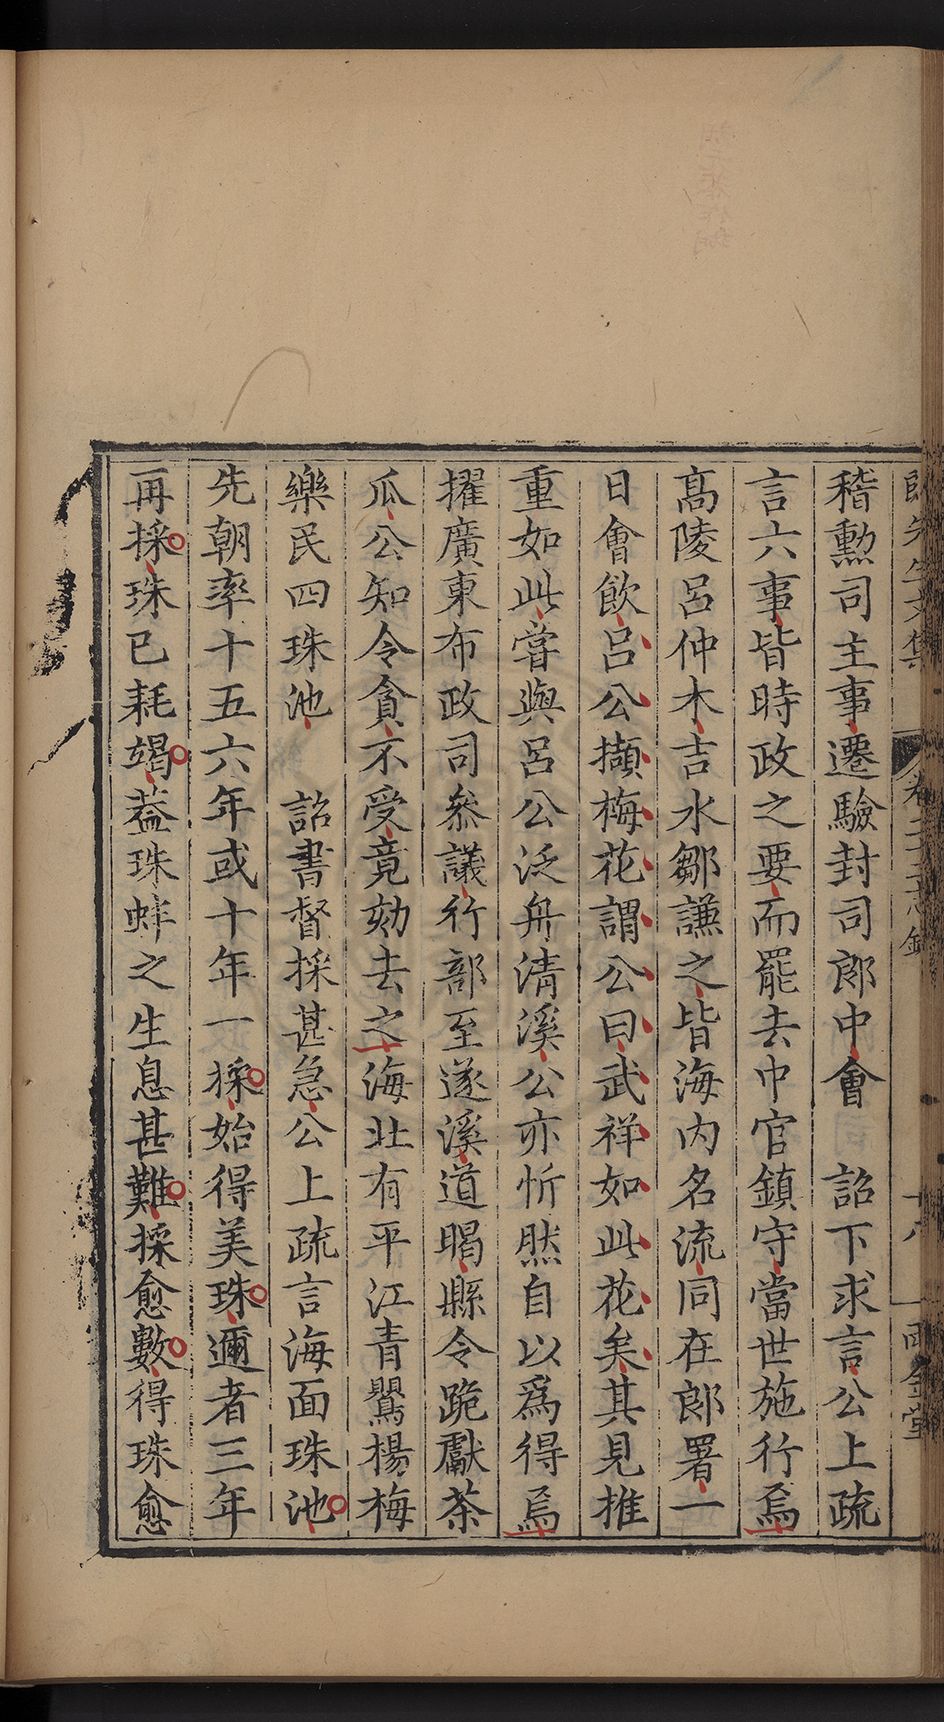 稽勳司主事遷驗封司郎中會　詔下求言公上疏
言六事皆時政之要而罷去中官鎮守當世施行焉
髙陵呂仲木吉水鄒謙之皆海内名流同在郎署一
日會飲呂公擷梅花謂公曰武祥如此花矣其見推
重如此嘗與呂公泛舟清溪公亦忻然自以爲得焉
擢廣東布政司叅議行部至遂溪道暍縣令跪獻茶
瓜公知令貪不受竟劾去之海北有平江青鸎楊梅
樂民四珠池　詔書督採甚急公上疏言海面珠池
先朝率十五六年或十年一採始得美珠邇者三年
再採珠已耗竭葢珠蚌之生息甚難採愈數得珠愈